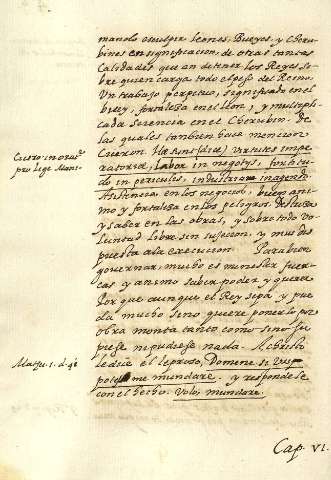 mandó esculpir leones, Bueyes, y Cheru-
bines en significacion, de otras tantas
Calidades que an de tener los Reyes so-
bre quien carga todo el peso del Reino.
Un trabajo perpetuo, significado en el
buey, fortaleza en el león, y multipli-
cada sciencia en el Cherubin. De
las quales tambien haze mencion
Cicero in orat.e
pro lege Mani-
Ciceron. Hæ sunt (dice) virtutes impe-
ratoriæ, Labor in negotys, fortitu-
do in periculis, industria in agendo
Asistencia en los negocios, buen ani-
mo y fortaleza en los peligros, destreza
y saber en las obras, y sobre todo vo-
luntad libre sin sujecion, y muy dis
puesta a la execucion Para bien
governar, mucho es menester fuer-
cas y animo saber poder y querer
Por que aunque el Rey sepa y pue
da mucho si no quiere ponerlo por
obra monta tanto como si no su
piese ni pudiese nada. A Christo
Math. 1. d. 40
le dice el leproso, Domine si vis
potes me mundare. y respondele
con el hecho. Volo, mundare.
Cap. VI.